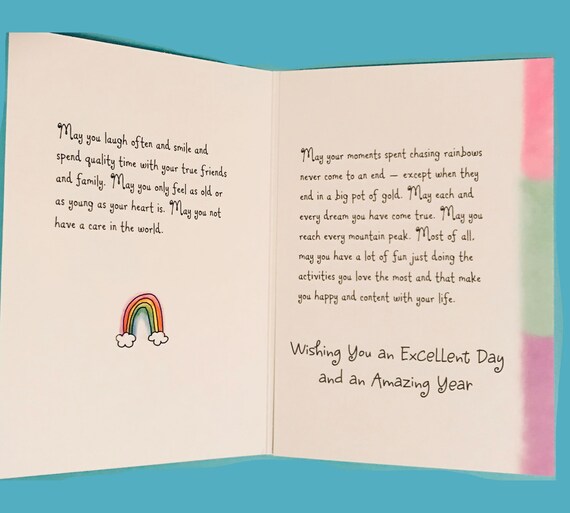 May you laugh often and smile and
spend quality time with your true friends
and family. May you only feel as old or
as young as your heart is. May you not
have a care in the world.
May your moments spent chasing rainbows
never come to an end — except when they
end in a big pot of gold. May each and
every dream you have come true. May you
reach every mountain peak. Most of all,
may you have a lot of fun just doing the
activities you love the most and that make
you happy and content with your life.
Wishing You an Excellent Day
and an Amazing Year